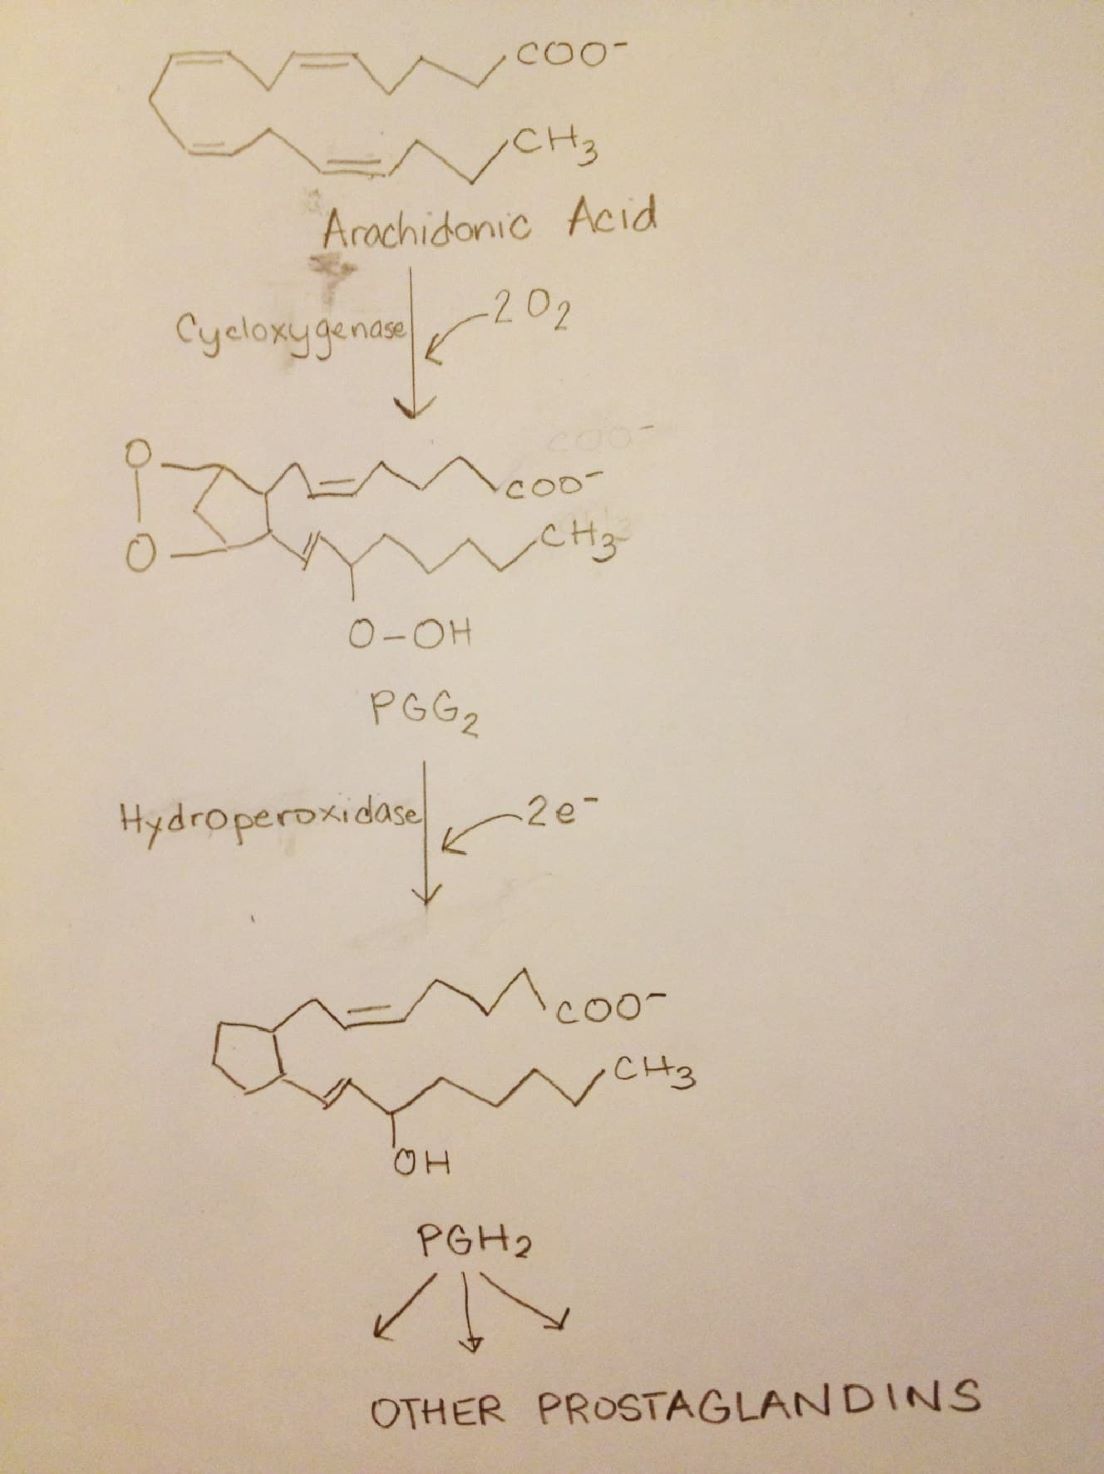 COO⁻
CH₃
Arachidonic Acid
2O₂
Cycloxygenase
O
COO⁻
O
CH₃
O-OH
PGG₂
Hydroperoxidase
2e⁻
COO⁻
CH₃
OH
PGH₂
OTHER PROSTAGLANDINS